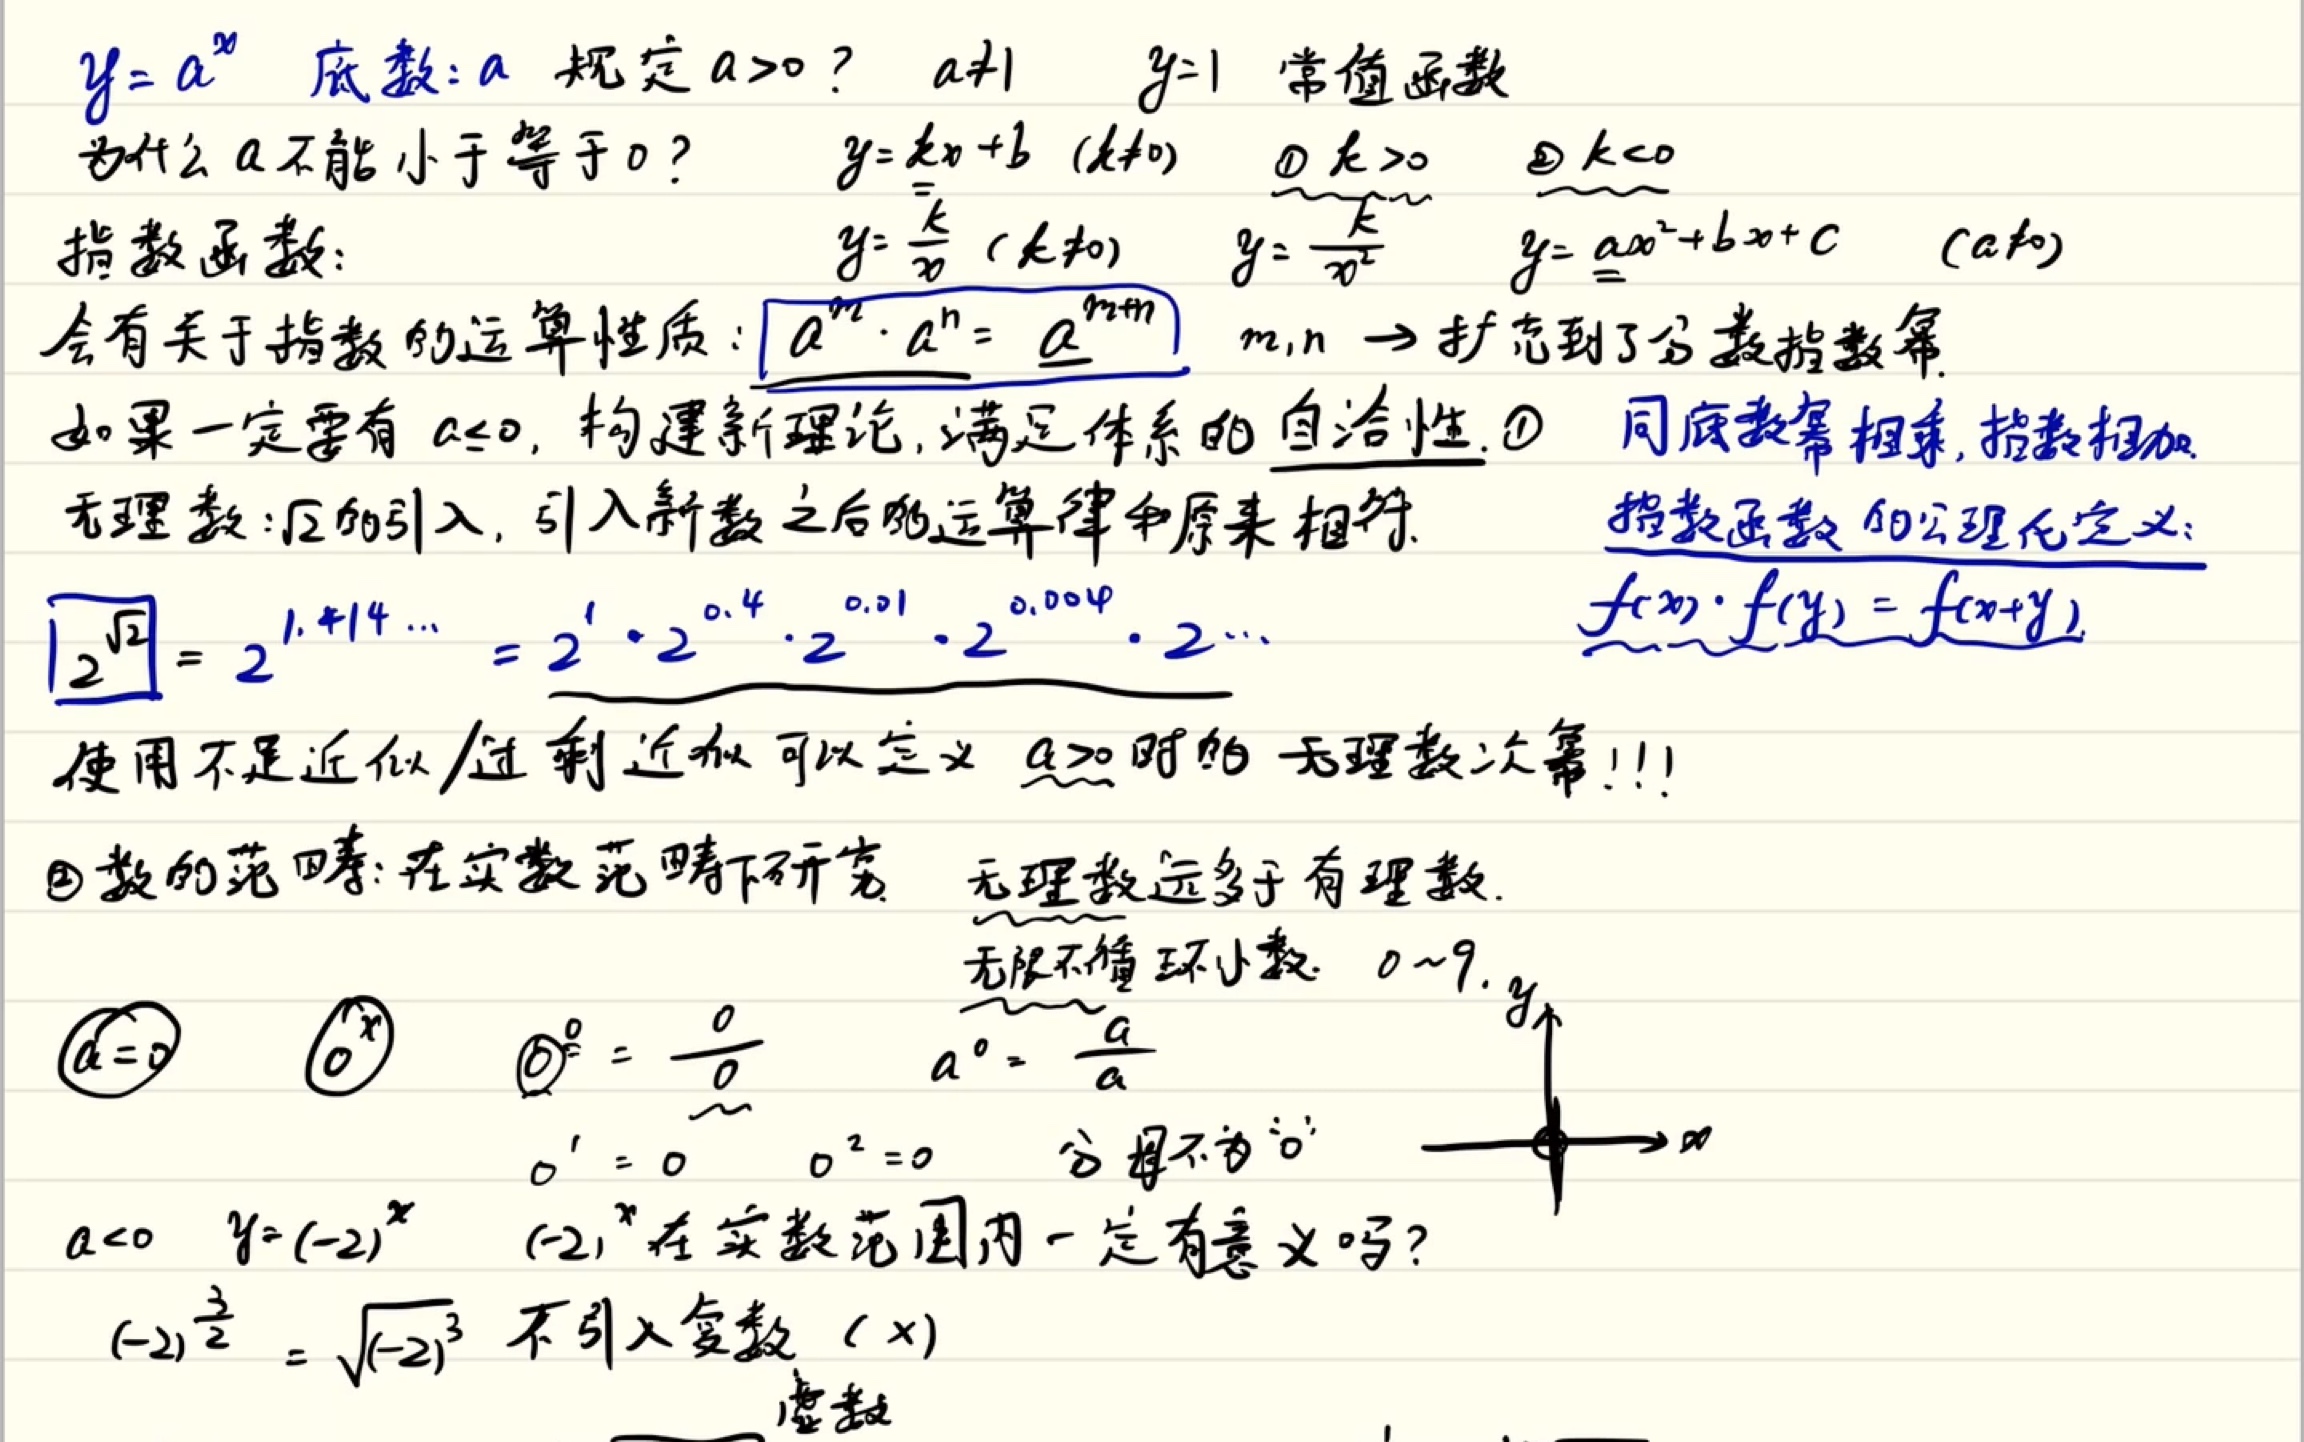 y=a^x 底数:a 规定 a>0? a≠1 y=1 常值函数
为什么 a 不能小于等于0? y=kx+b (k≠0) ① k>0 ② k<0
指数函数: y=k/x (k≠0) y=k/x² y=ax²+bx+c (a≠0)
会有关于指数的运算性质: a^m·a^n=a^(m+n) m,n → 扩充到了分数指数幂.
如果一定要有 a≤0, 构建新理论,满足体系的自洽性.① 同底数幂相乘,指数相加.
无理数:√2的引入, 引入新数之后的运算律和原来相符. 指数函数的公理化定义:
2^√2 = 2^1.414... = 2^1·2^0.4·2^0.01·2^0.004·2^... f(x)·f(y)=f(x+y)
使用不足近似/过剩近似 可以定义 a>0时的 无理数次幂!!!
②数的范畴:在实数范畴下研究. 无理数远多于有理数.
无限不循环小数. 0~9.
y
a=0 0^x 0^0=0/0 a^0=a/a
0^1=0 0^2=0 分母不为"0" x
a<0 y=(-2)^x (-2)^x在实数范围内一定有意义吗?
(-2)^(3/2) = √(-2)^3 不引入复数 (×)
虚数